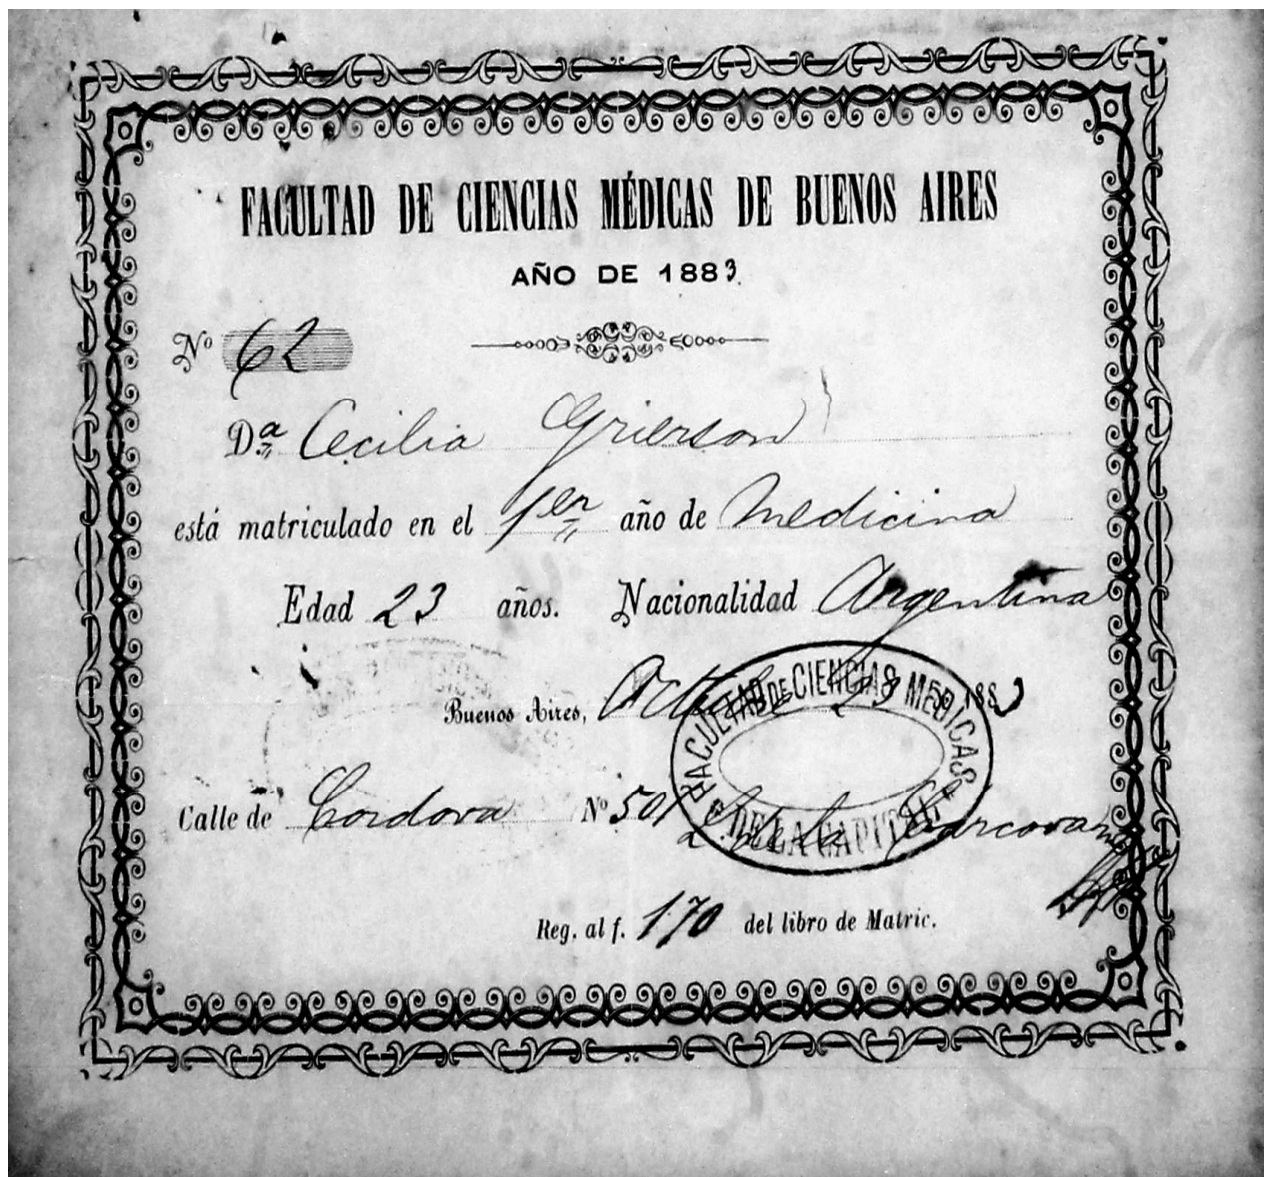 FACULTAD DE CIENCIAS MÉDICAS DE BUENOS AIRES
AÑO DE 1883
Nº 62
Dª Cecilia Grierson
está matriculado en el 1er año de Medicina
Edad 23 años. Nacionalidad Argentina
Buenos Aires, 23 de 1883
FACULTAD DE CIENCIAS MEDICAS
DE LA CAPITAL
Calle de Cordova Nº 501
Reg. al f. 170 del libro de Matric.